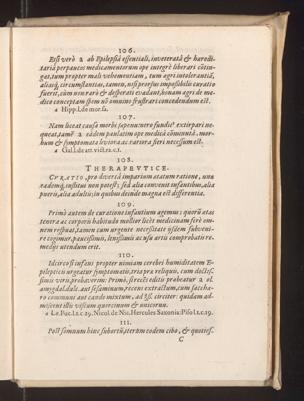 106.
Etsi verò a ab Epilepsiâ essentiali, inveteratâ & heredi-
tariâ perpaucos medicamentorum ope integrè liberari contin-
gat, tum propter mali vehementiam, tum ægri intolerantiâ,
aliasq; circumstantias, tamen, nisi prorsus impossibilis curatio
fuerit, cùm non rarò & desperati evadant, bonam ægri de me-
dico conceptam spem nō omnino frustrari concedendum est.
a Hipp. l. de mor. sa.
107.
Nam liceat causa morbi
tamē a eādem paulatim ope medicâ cōminutâ, mor-
bum & symptomata leviora ac rariora fieri necessum est.
a Gal. l. de art. vict. ra. c. 1.
108.
THERAPEVTICE.
CVRATIO, pro diversâ impartum ætatum ratione, una
eademq; institui non potest: sed alia convenit infantibus, alia
pueris, alia adultis; in quibus deinde magna est differentia.
109.
Primò autem de curatione infantium agemus: quorū ætas
tenera ac corporis habitudo mollior licèt medicinam ferè om-
nem respuat, tamen cum urgente necessitate iisdem subveni-
re cogimur, paucissimis, lenissimis ac usu artis comprobatis re-
mediis utendum erit.
110.
Idcirco si infans propter nimiam cerebri humiditatem E-
pileptici urgatur symptomatis, tria præ reliquis, cum doctis-
simis viris probaverim: Primò, si recēs editis probeatur 2 ol.
amygdal. dulc. aut sesaminum, recens extractum, cum sacha-
ro communi aut cando mixtum, ad circiter: quidam ad-
misçent illis viscum quercinum & unicornu.
a Le. Fuc. l. 1. c. 29. Nicol. de Nic. Hercules Saxonia: Piso l. 1. c. 19.
111.
Post somnum hinc subortū, iterùm eodem cibo, & quoties-
C